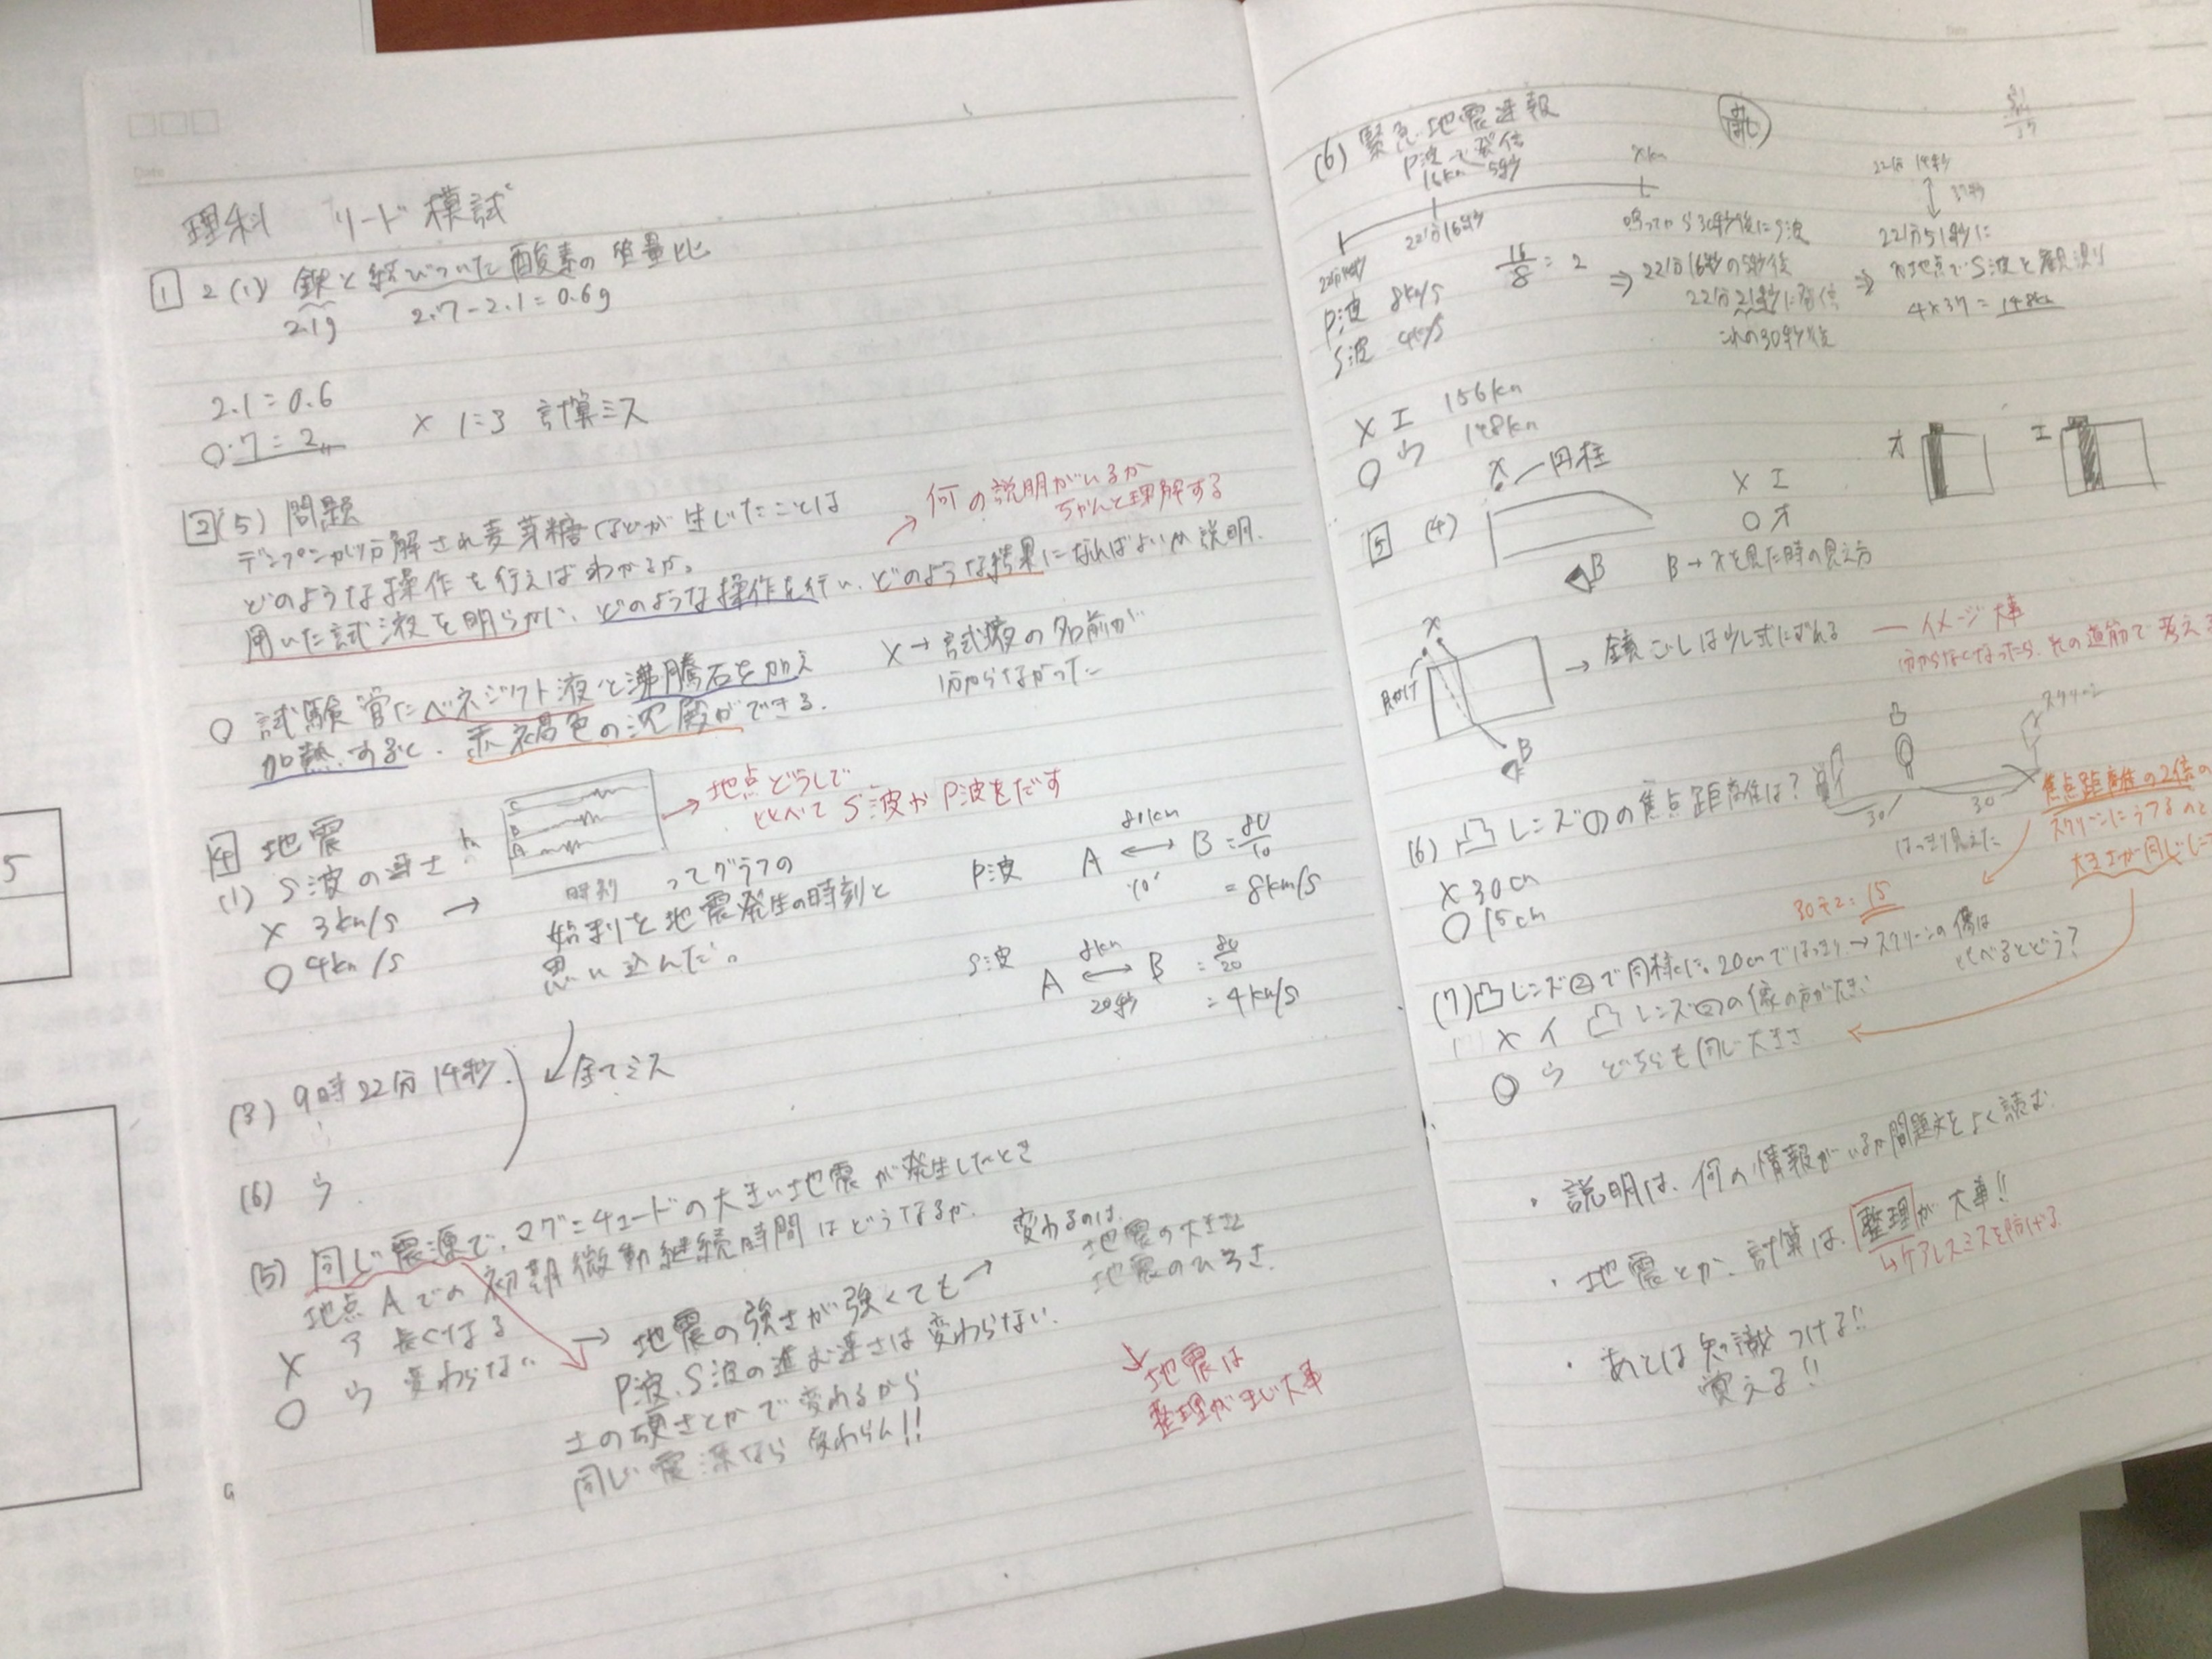 理科 リード模試
1 2 (1) 鉄と結びついた酸素の質量比
2.1g 2.7-2.1=0.6g
2.1=0.6
○ 7=2 × 1=3 計算ミス
2 (5) 問題
デンプンが分解され麦芽糖などが生じたことは
どのような操作を行えばわかるか。
用いた試液を明らかに、どのような操作を行い、どのような結果になればよいか説明.
→ 何の説明がいるか
ちゃんと理解する
○ 試験管にベネジクト液と沸騰石を加え
加熱するとく、赤褐色の沈殿ができる.
× → 試液の名前が
分からなかった
4 地震
(1) S波の速さ
× 3km/s →
○ 4km/s
C
B
A
時刻
→ 地点どうしで
くらべてS波かP波をだす
ってグラフの
始まりを地震発生の時刻と
思い込んだ。
P波 A ↔ B = 80/10
80km
10'
= 8km/s
S波 A ↔ B = 80/20
8km
20秒
= 4km/s
(3) 9時22分14秒.
(6) ウ.
全てミス
(5) 同じ震源で、マグニチュードの大きい地震が発生したとき
地点Aでの初期微動継続時間はどうなるか.
× ア 長くなる
○ ウ 変わらない
→ 地震の強さが強くても →
P波、S波の進む速さは変わらない.
土の硬さとかで変わるから
同じ震源なら変わらん!!
変わるのは.
地震の大きさ
地震のひろさ.
地震は
整理がまじ大事
(6) 緊急地震速報
P波→発信
16km 5秒
xkm
22分16秒
22分14秒
P波 8km/s
S波 4km/s
16/8=2
鳴ってから30秒後にS波
⇒ 22分16秒の5秒後
22分21秒に発信
これの30秒後
22分14秒
↕ 37秒
22分51秒に
⇒ x地点でS波を観測
4×37=148km
× エ 156km
○ ウ 148km
5 (4)
x 円柱
B
× エ
○ オ
B→xを見た時の見え方
オ
エ
x
見かけ
B
→ 鏡ごしは少し左にずれる
イメージ大事
分からなくなったら、光の道筋で考える
(6) 凸レンズ①の焦点距離は?
× 30cm
○ 15cm
凸
スクリーン
30
30
はっきり見えた
焦点距離の2倍の
スクリーンにうつるのと
大きさが同じに
30÷2=15
(7) 凸レンズ②で同様に。20cmではっきり→スクリーンの像は
くらべるとどう?
× イ 凸レンズ②の像の方が大きい
○ ウ どちらも同じ大きさ
・説明は、何の情報がいるか問題文をよく読む.
・地震とか、計算は、整理が大事!!
↳ケアレスミスを防げる.
・あとは知識つける!!
覚える!!
5